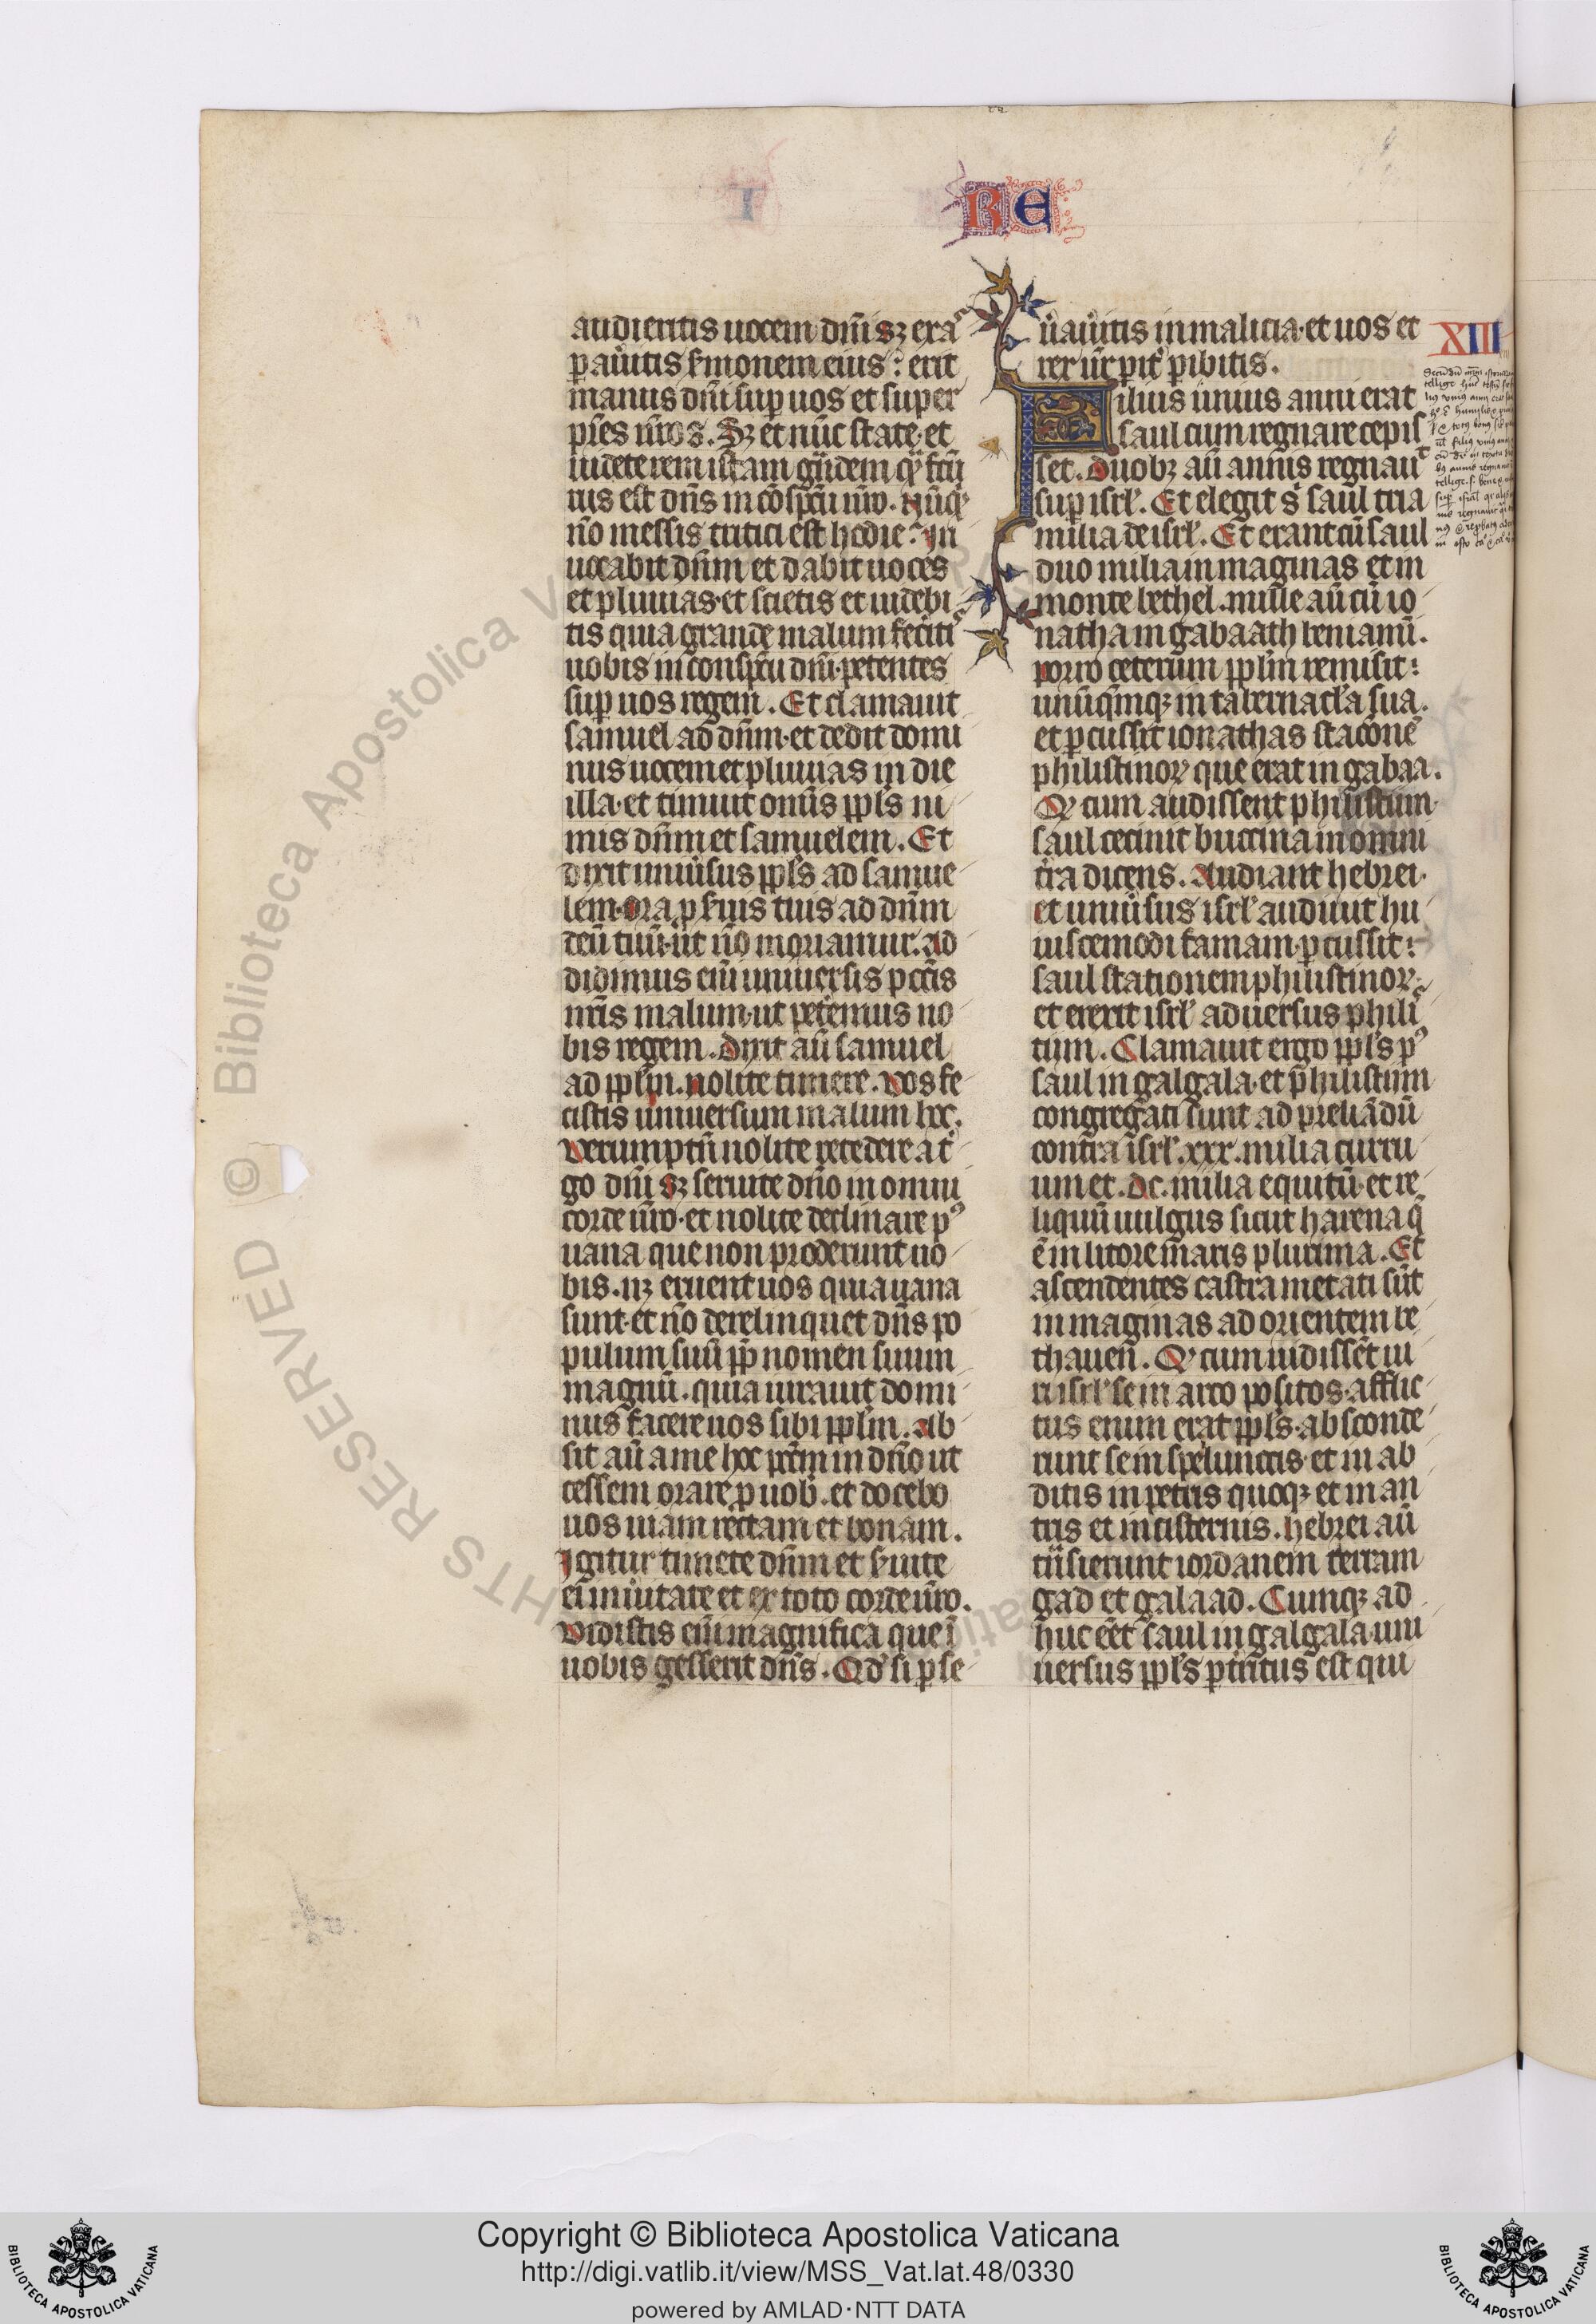 RE
audieritis uocem dñi sꝫ exa
ꝑauͥitis ẜmonem eius: erit
manus dñi suꝑ uos et super
pr̃es ur̃os. Sꝫ et nũc state et
uidete rem istam grͣndem qͣ̃ fcũ
rus est dñs in cõspcũ ur̃o. Nũqͥꝫ
nõ messis tritici est hodie? In
uocabit dñm et dabit uoces
et pluuias et scietis et uidebi
tis quia grande malum feciti
uobis in conspcũ dñi petentes
suꝑ uos regem. Et clamauit
samuel ad dñm et dedit domi
nus uocem et pluuias in die
illa et timuit omĩs ppl̃s ni
mis dñm et samuelem. Et
dixit uniuͥsus ppl̃s ad samue
lem. Ora ꝓ ẜuis tuis ad dñm
deũ tuũ ut nõ moriamur. Ad
didimus eĩ uniuersis pccĩs
nr̃is malum ut petemus no
bis regem. Dixit aũ samuel
ad ppl̃m. Nolite timere. Vos fe
cistis uniuersum malum hoc.
Verumptñ nolite recedere a tͥ
go dñi sꝫ seruite dño in omni
corde ur̃o et nolite declinare pꝰ
uana que non proderunt uo
bis. nꝫ eruent uos quia uana
sunt et nõ derelinquet dñs po
pulum suũ pp̃ nomen suum
magnũ. quia iurauit domi
nus facere uos sibi ppl̃m. Ab
sit aũ a me hoc pctm̃ in dño ut
cessem orare ꝓ uob̃. et docebo
uos uiam rectam et bonam.
Igitur timete dñm et ẜuite
ei in uͥitate et ex toto corde ur̃o.
Vidistis eĩ magnifica que ĩ
uobis gesserit dñs. Qd̃ si ꝑse
uͥauͥitis in malicia et uos et
rex ur̃ pitͥ ꝑibitis.
XIII
Filius unius anni erat
saul cum regnare cepis
set. Duobꝫ aũ annis regnauͭ
suꝑ isrl̃. Et elegit sͥ saul tria
milia de isrl̃. Et erant cũ saul
duo milia in magmas et in
monte bethel. mille aũ cũ io
natha in gabaath beniamĩ.
porro ceterum ppl̃m remisit:
unũqͥmqꝫ in tabernacl̃a sua.
et ꝑcussit ionathas stacõnẽ
philistinoꝝ que erat in gabaa.
Qͥ cum audissent philistiim
saul cecinit buccina in omni
tͥra dicens. Audiant hebrei
et uniuͥsus isrl̃ audiuit hu
iuscemodi famam ꝑcussit:
saul stationem philistinoꝝ
et erexit isrl̃ aduersus philiͥ
tiim. Clamauit ergo ppl̃s pꝰ
saul in galgala et philistiim
congregati sunt ad preliãdũ
contra isrl̃ .xxx. milia curru
um et .dc. milia equitũ et re
liquũ uulgus sicut harena q̃
ẽ in litore maris plurima. Et
ascendentes castra metati sũt
in magmas ad orientem be
thauen. Qͥ cum uidissẽt ui
ri isrl̃ se in arto positos afflic
tus enim erat ppl̃s absconde
runt se in speluncis et in ab
ditis in petris quoqꝫ et in an
tris et in cisternis. Hebrei aũ
tͣ̃sierunt iordanem terram
gad et galaad. Cumqꝫ ad
huc eẽt saul in galgala uni
uersus ppl̃s ꝑtͥritus est qui
Copyright © Biblioteca Apostolica Vaticana
http://digi.vatlib.it/view/MSS_Vat.lat.48/0330
powered by AMLAD·NTT DATA
BIBLIOTECA APOSTOLICA VATICANA
BIBLIOTECA APOSTOLICA VATICANA